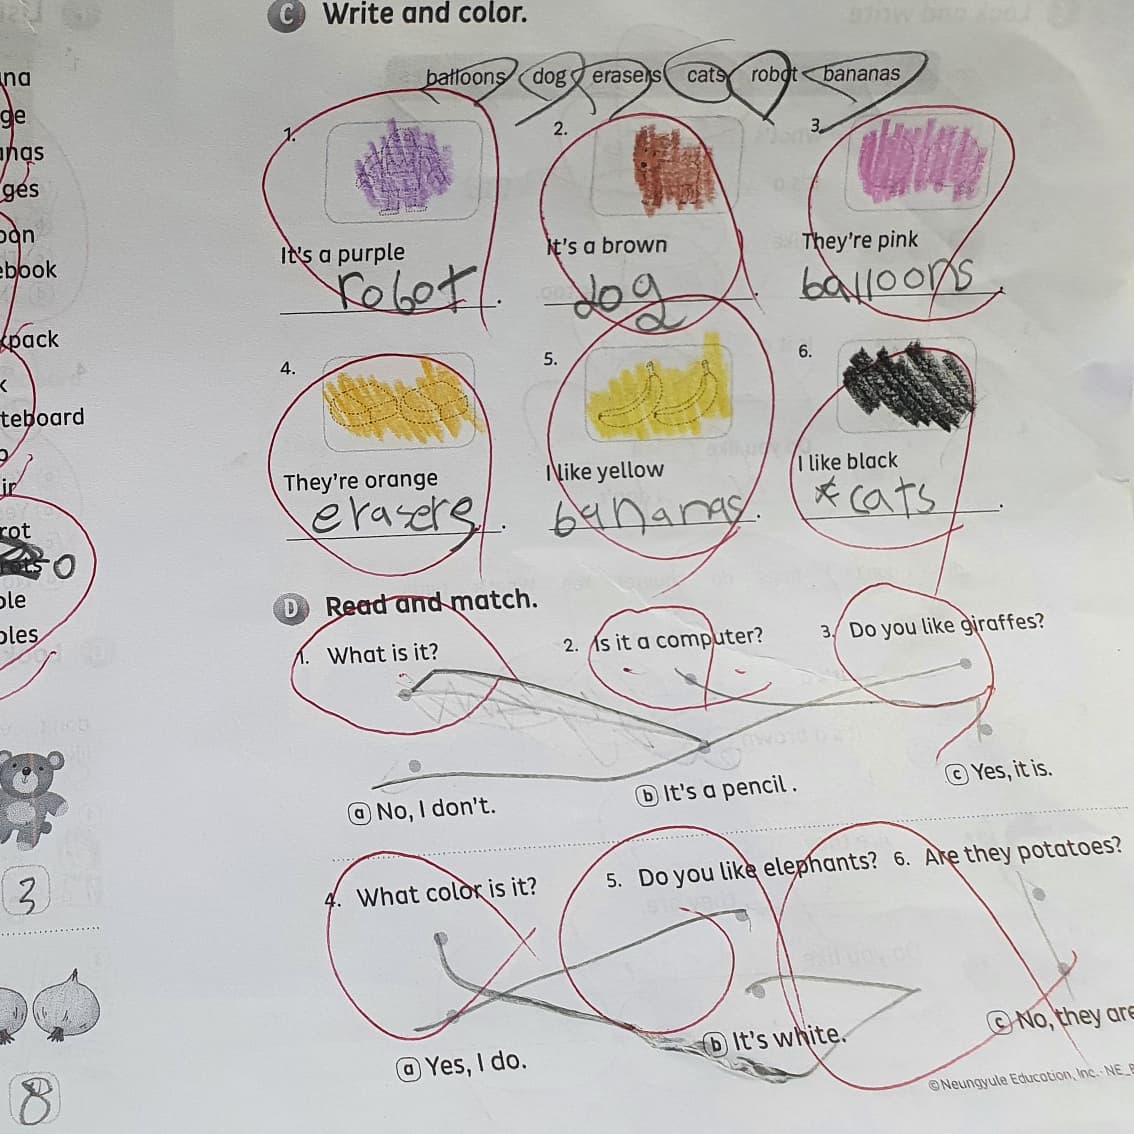 C Write and color.
balloons dog erasers cats robot bananas
1. 2. 3.
It's a purple It's a brown They're pink
robot. dog. balloons.
4. 5. 6.
They're orange I like yellow I like black
erasers. bananas. *cats.
D Read and match.
1. What is it? 2. Is it a computer? 3. Do you like giraffes?
a No, I don't. b It's a pencil. c Yes, it is.
4. What color is it? 5. Do you like elephants? 6. Are they potatoes?
a Yes, I do. b It's white. c No, they are
©Neungyule Education, Inc. NE_
book
pack
teboard
3
8